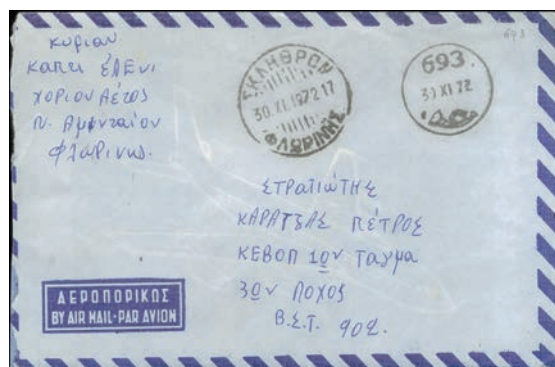 κυριαν
καπει ΕΛΕΝΙ
χοριον Αέτος
Ν. Αμυνταίον
Φλωρινις.
ΣΚΛΗΘΡΟΝ
30 XI 1972 17
ΦΛΩΡΙΝΗΣ
693
693
30 XI 72
ΣΤΡΑΤΙΏΤΗΣ
ΚΑΡΑΤΖΑΣ ΠΈΤΡΟΣ
ΚΕΒΟΠ 1ον Ταγμα
3ον ΛΟΧΟΣ
Β.Σ.Τ. 902.
ΑΕΡΟΠΟΡΙΚΩΣ
BY AIR MAIL-PAR AVION